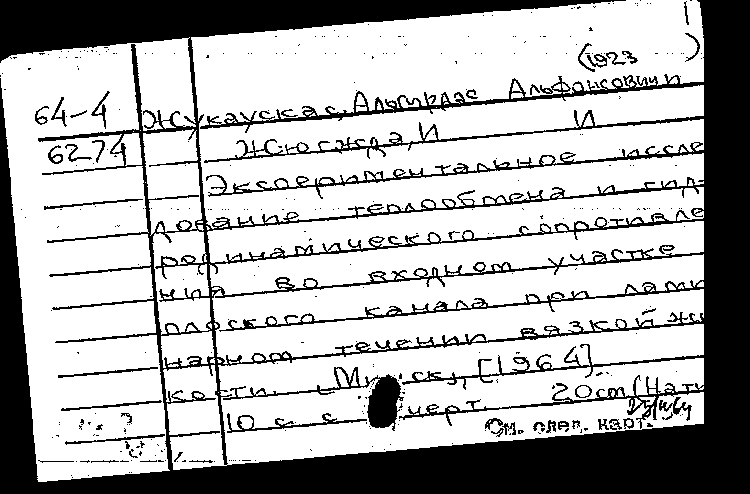 (1923 )
64-4 Жукаускас, Альгирдас Альфонсович
6274 Жюгжда, И И
Экспериментальное иссле
дование теплообмена и гид-
родинамического сопротивле
ния во входном участке
плоского канала при лами
нарном течении вязкой жи
кости. [Минск], [1964]
10 с. с черт. 20 cm (Нати
См. след. карт.